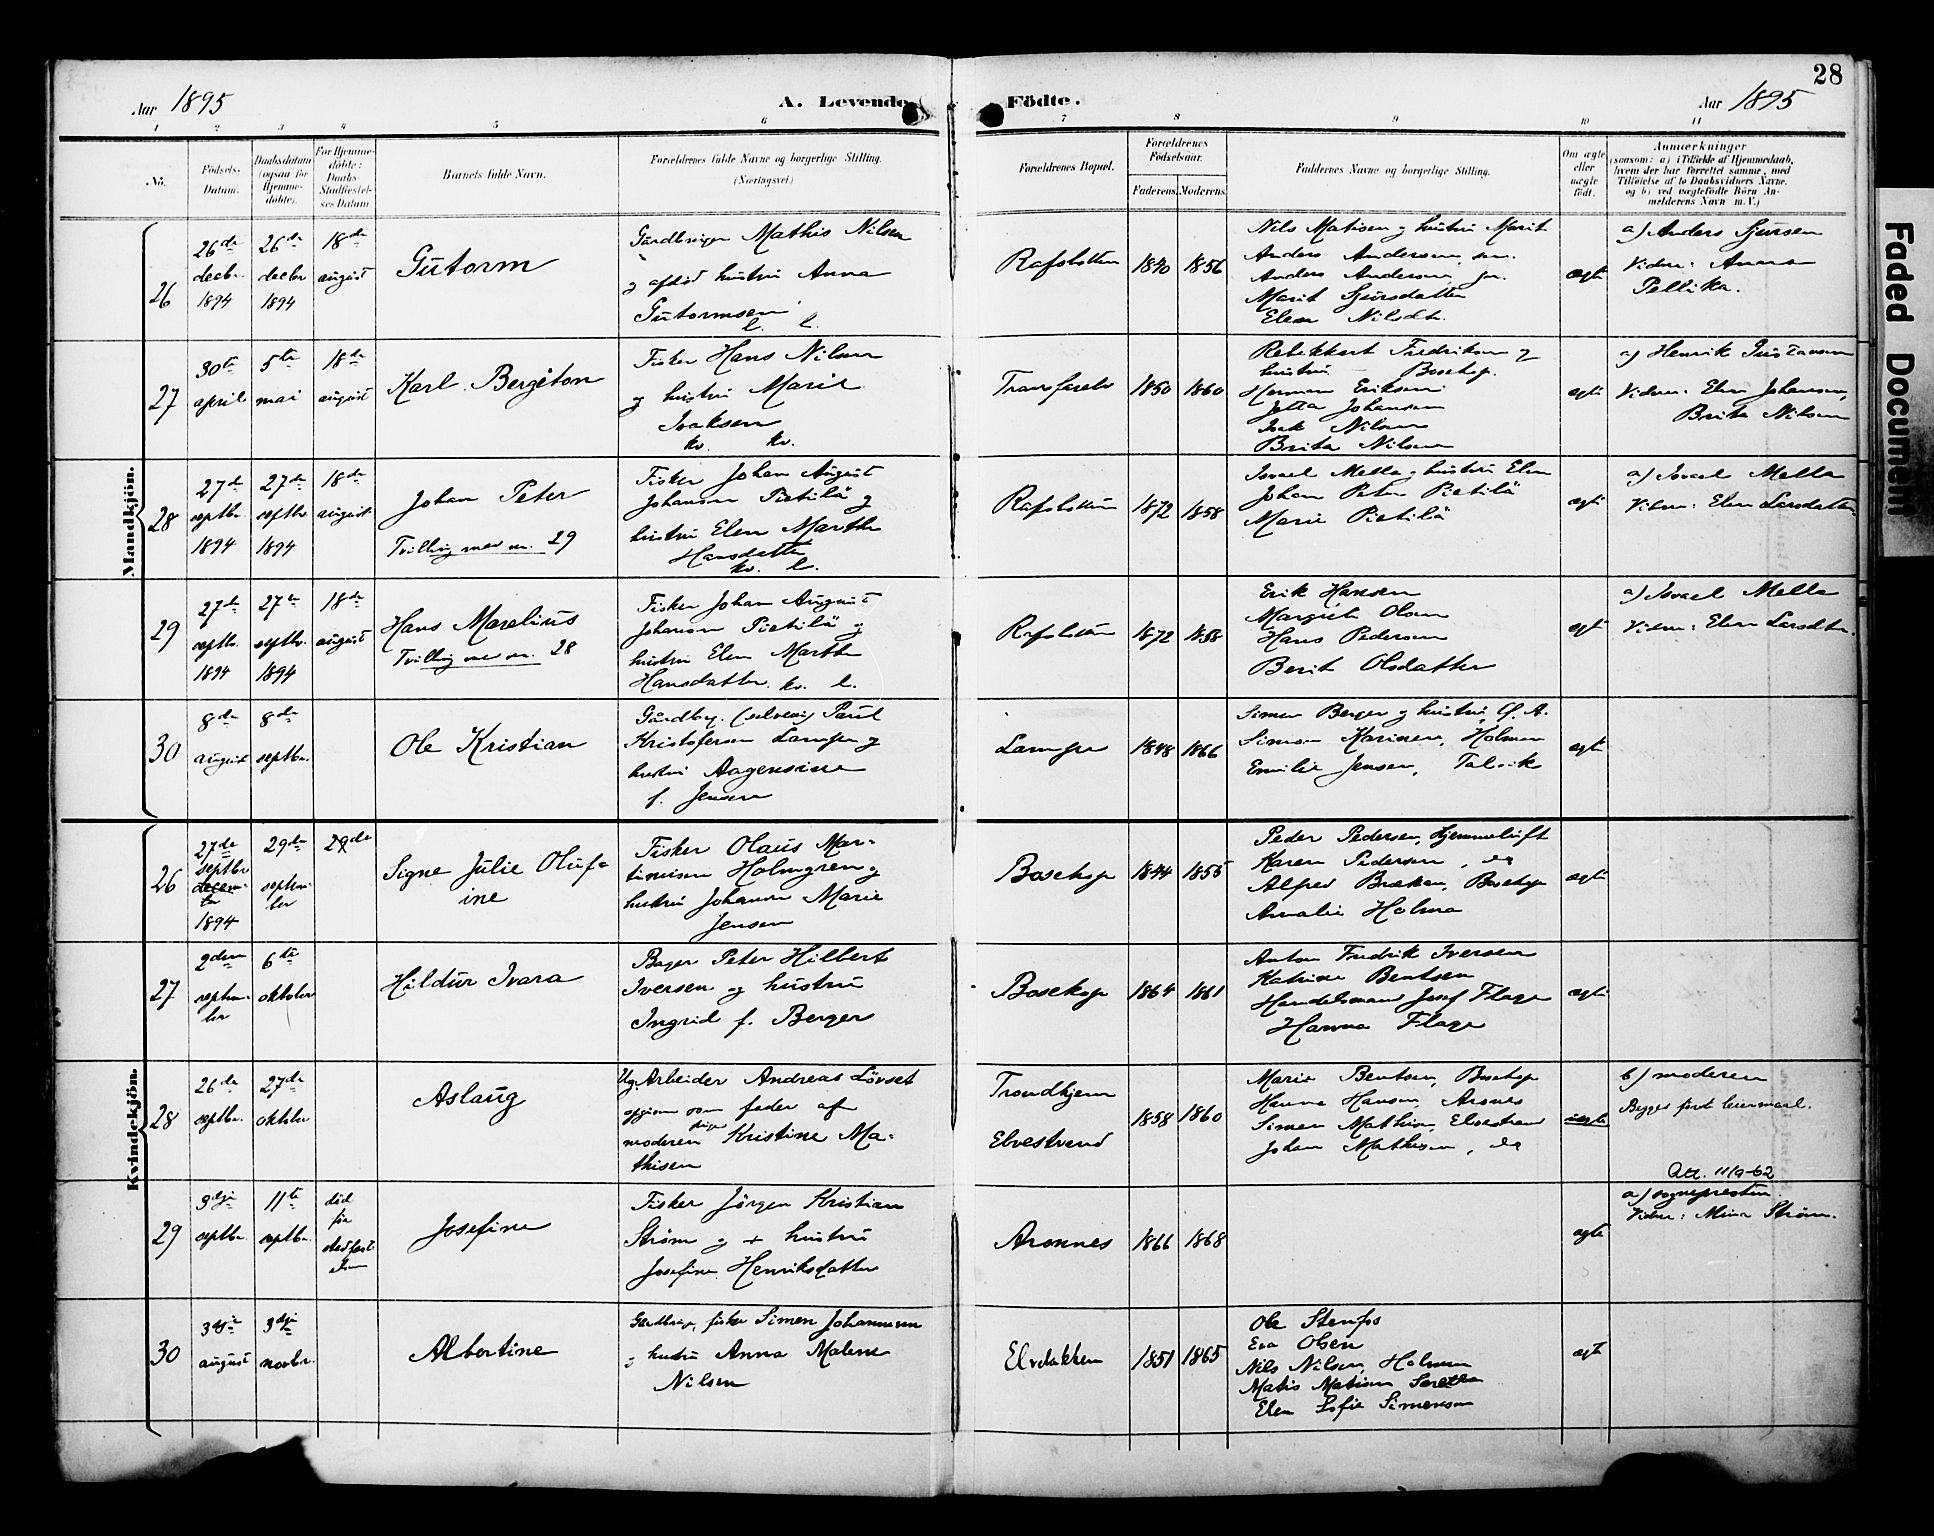 28
Aar 1895
A. Levende
Födte.
Aar 1895
1 2 3 4 5 6 7 8 9 10 11
No.
Födsels-
Datum.
Daabsdatum
(ogsaa for
Hjemme-
döbte).
For Hjemme-
döbte:
Daabs-
Stadfæstel-
ses Datum
Barnets fulde Navn.
Forældrenes fulde Navne og borgerlige Stilling.
(Næringsvei.)
Forældrenes Bopæl.
Forældrenes
Födselsaar.
Faderens. Moderens.
Faddernes Navne og borgerlige Stilling.
Om ægte
eller
uægte
födt.
Anmærkninger
(saasom: a) i Tilfælde af Hjemmedaab,
hvem der har forrettet samme, med
Tilföielse af to Daabsvidners Navne.
og b) ved uægtefödte Börn An-
melderens Navn m. V.)
Mandkjön.
26
26de
decbr.
1894
26de
decbr
1894
18de
august
Gutorm
Gårdbruger Mathis Nilsen
og afdød hustru Anna
Gutormsen
l. l.
1840 1856
Nils Matisen og hustru Marit
Anders Andersen, sen.
Anders Andersen, jn.
Marit Sjursdatter
Elen Nilsdt.
ægte
a) Anders Sjursen
Vidner: Anna
Pellika.
27
30te
april
5te
mai
18de
august
Karl Bergiton
Fisker Hans Nilsen
og hustru Marit
Isaksen
kv. kv.
1850 1860
Fredriksen og
hustru Bosekop.
Herman Eriksen
Johansen
Isak Nilsen
Brita Nilsen
ægte
a) Henrik
Vidner: Elen Johansen,
Brita Nilsen
28
27de
septbr.
1894
27de
septbr
1894
18de
august
Johan Peter
Tvilling med nr. 29
Fisker Johan August
Johansen Pietilä og
hustru Elen Marthe
Hansdatter
kv. l.
1872 1858
Israel Mella og hustru Elen
Johan Peter Pietilä
Marie Pietilä
ægte
a) Israel Mella
Vidner: Elen Larsdatter
29
27de
septbr.
1894
27de
septbr.
1894
18de
august
Hans Marelius
Tvilling med nr. 28
Fisker Johan August
Johansen Pietilä og
hustru Elen Marthe
Hansdatter. kv. l.
1872 1858
Erik Hansen
Margith Olsen
Hans Pedersen
Berit Olsdatter
ægte
a) Israel Mella
Vidner: Elen Larsdtr.
30
8de
august
8de
septbr.
Ole Kristian
Gårdbrg. (selveier) Paul
Kristofersen Lampe og
hustru Aagensine
f. Jensen
Lampe
1848 1866
Simon Berger og hustru,
Simon Karinen, Holmen
Emilie Jensen, Talvik
ægte
Kvindekjön.
26
27de
septbr
decem-
br
1894
29de
septem-
ber
29de
Signe Julie Oluf-
ine
Fisker Olaus Mar-
tinusen Holmgren og
hustru Johanne Marie
Jensen
Bosekop
1844 1855
Peder Pedersen, Hjemmeluft
Karen Pedersen, do
Alfred Brækken, Bosekop
Amalie Holma
ægte
27
2den
septem-
ber
6te
oktober
Hildur Ivara
Bager Peter Hilbert
Iversen og hustru
Ingrid f. Berger
Bosekop
1864 1861
Anton Fredrik Iversen
Katrine Bentsen
Handelsmand Josef Flage
Hanna Flage
ægte
28
26de
septbr.
27de
oktober
Aslaug
Ug. Arbeider Andreas Lövset
opgiven som fader af
moderen pige Kristine Ma-
thisen
Trondhjem
Elvestrand
1858 1860
Marie Bentsen, Bosekop
Hanna Hansen, Aronnes
Simen Mathisen, Elvestrand
Johan Mathisen, do
uægte
b) moderen
Begges först leiermaal.
Att. 11/9-62
29
3dje
septbr.
11te
septbr.
död
før
stadfæst-
elsen
Josefine
Fisker Jörgen Kristian
Ström og + hustru
Josefine Henriksdatter
Aronnes
1866 1868
ægte
a) sognepresten.
Vidner: Mina Ström.
30
3dje
august
3dje
novbr.
Albertine
Gårdbrug, fisker Simen Johannesen
og hustru Anna Malene
Nilsen
Elvebakken
1851 1865
Ole
Eva Olsen
Nils Nilsen, Holmen
Matis Matisen
Elen Sofie Simensen
ægte
Faded Document